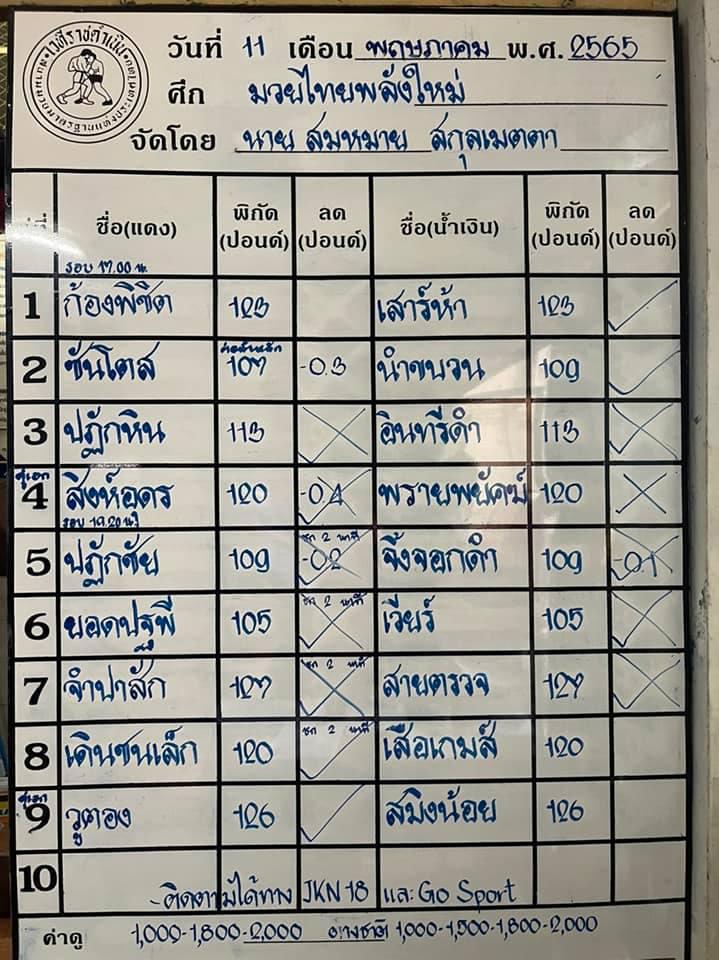 วันที่ 11 เดือน พฤษภาคม พ.ศ. 2565
ศึก มวยไทยพลังใหม่
จัดโดย นาย สมหมาย สกุลเมตตา
ชื่อ(แดง) พิกัด (ปอนด์) ลด (ปอนด์) ชื่อ(น้ำเงิน) พิกัด (ปอนด์) ลด (ปอนด์)
รอบ 17.00 น.
1 ก้องพิชิต 123 เสาร์ห้า 123
2 ซันโตส 107 -0.3 นำขบวน 109
3 ปฏักหิน 113 อินทรีดำ 113
คู่เอก
4 สิงห์อุดร 120 -0.4 พรายพยัคฆ์ 120
รอบ 19.20 น.
5 ปฏักชัย 109 ชก 2 นาที -0.2 จิ้งจอกดำ 109 -0.1
6 ยอดปฐพี 105 ชก 2 นาที เวียร์ 105
7 จำปาสัก 127 ชก 2 นาที สายตรวจ 127
8 เดินชนเล็ก 120 ชก 2 นาที เสือเกมส์ 120
คู่เอก
9 วูตอง 126 สมิงน้อย 126
10
-ติดตามได้ทาง JKN 18 และ Go Sport
ค่าดู 1,000-1,800-2,000 ต่างชาติ 1,000-1,500-1,800-2,000